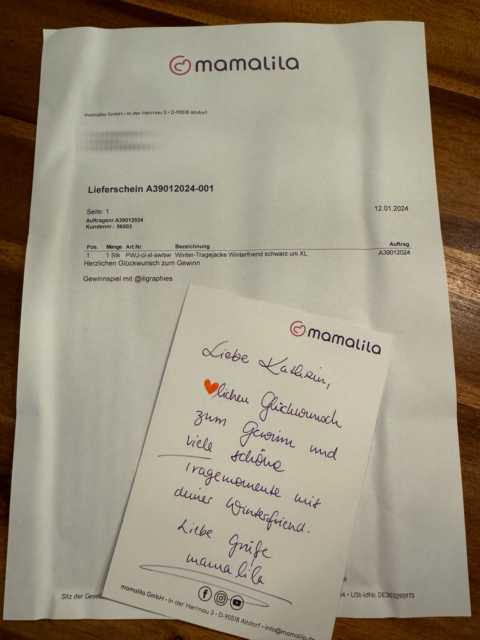 mamalila
mamalila GmbH • In der Herrnau 3 • D-90518 Altdorf
Lieferschein A39012024-001
Seite: 1
12.01.2024
Auftragsnr.A39012024
Pos. Menge Art.Nr Bezeichnung Auftrag
1 1 Stk Winter-Tragejacke Winterfriend schwarz uni XL A39012024
Herzlichen Glückwunsch zum Gewinn
Gewinnspiel mit @iligraphies
mamalila
Liebe Kathrin,
❤lichen Glückwunsch
zum Gewinn und
viele schöne
Tragemomente mit
deiner Winterfriend.
Liebe Grüße
mamalila
mamalila GmbH • In der Herrnau 3 • D-90518 Altdorf • info@mamalila.
Sitz der Gesel
USt-IdNr.